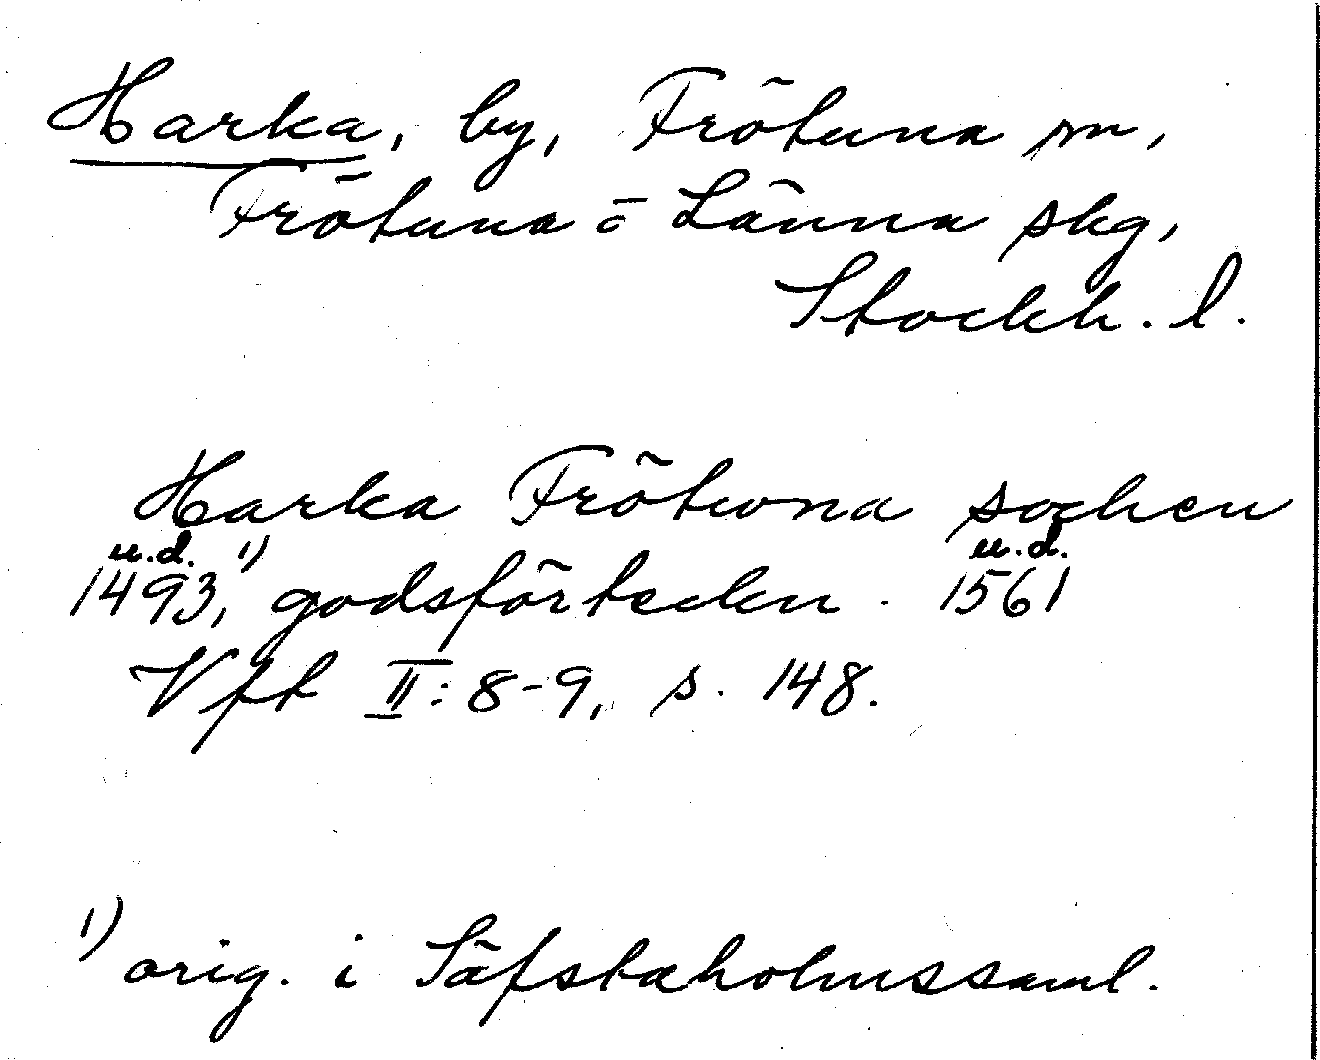 Harka, by, Frötuna sn,
Frötuna o Länna skg,
Stockh. l.
Harka Frötwna sochen
u.d. 1) u.d.
1493, godsförteckn. 1561
Vft II: 8-9, s. 148.
1) orig. i Säfstaholmssaml.